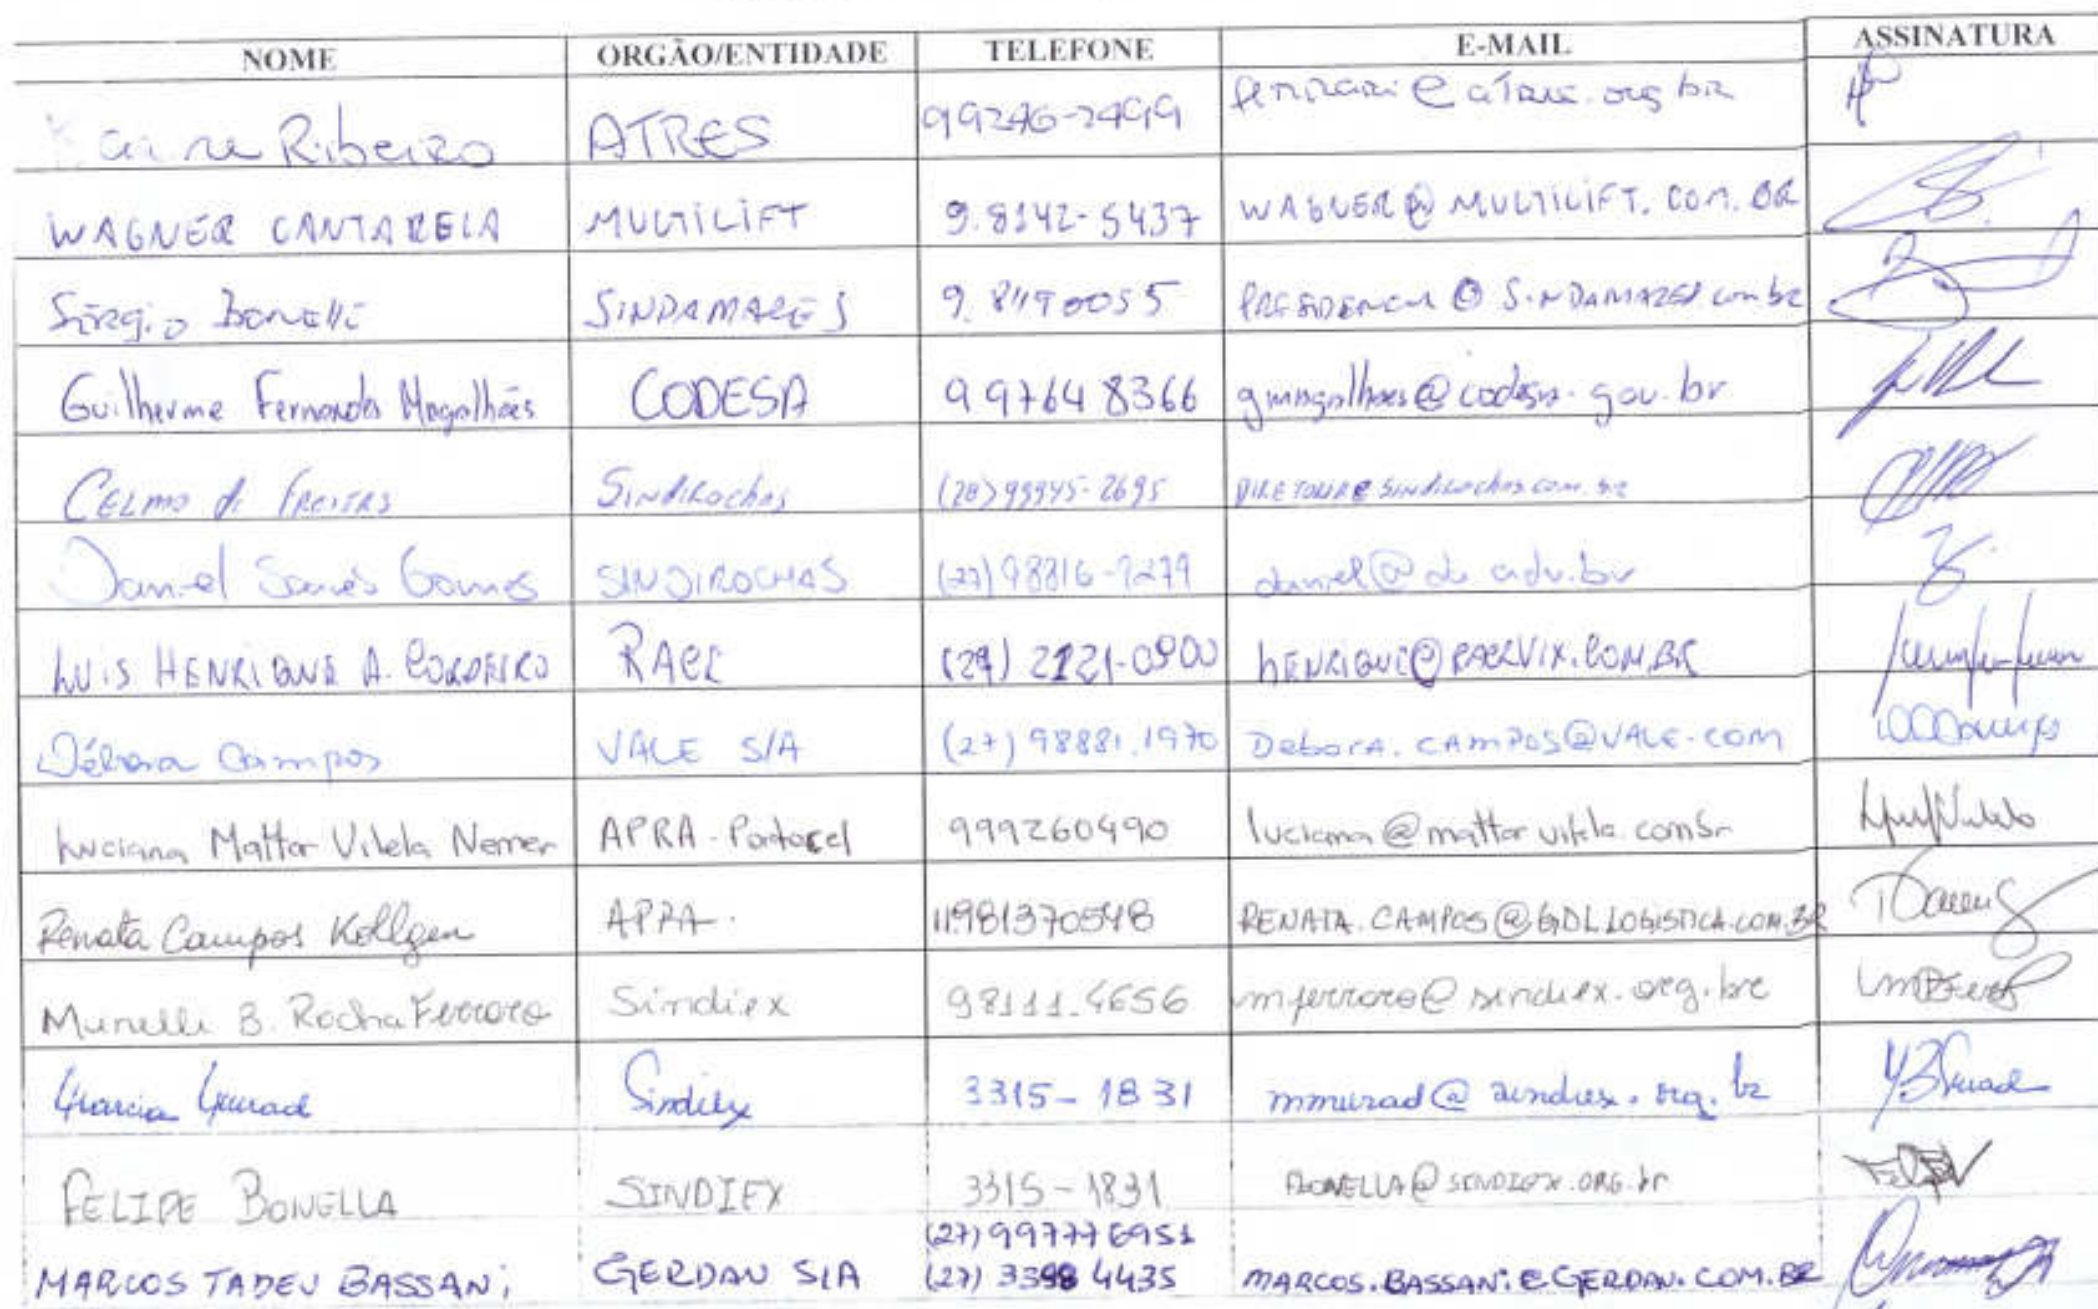 NOME ORGÃO/ENTIDADE TELEFONE E-MAIL ASSINATURA
Ribeiro ATRES 99246-2499
WAGNER CANTARELA MULTILIFT 9.8142-5437 WAGNER@MULTILIFT.COM.BR
Sérgio Bonelli SINDAMARES 9.81490055
Guilherme Fernando Magalhães CODESA 997648366 gmagalhaes@codesa.gov.br
CELMO de FREITAS Sindirochas (28) 99945-2695 DIRETORIA@sindirochas.com.br
Daniel Soares Gomes SINDIROCHAS daniel@
LUIS HENRIQUE A. CORDEIRO (27) 2121-0900
Débora Campos VALE S/A (27) 98881.1970 Debora.CAMPOS@VALE.COM
Luciana Mattar Vilela Nemer APRA-Portocel 999260490 luciana@mattarvilela.combr
Renata Campos Kollgen APRA. 11981370548 RENATA.CAMPOS@GDLLOGISTICA.COM.BR
Munelli B. Rocha Ferraro Sindiex 98111.4656 mferraro@sindiex.org.br
Marcia Murad Sindiex 3315-1831 mmurad@sindiex.org.br
FELIPE BONELLA SINDIEX 3315-1831 FBONELLA@SINDIEX.ORG.br
(27) 997776951
MARCOS TADEU BASSANi GERDAU S/A (27) 3398 4435 MARCOS.BASSANi@GERDAU.COM.BR